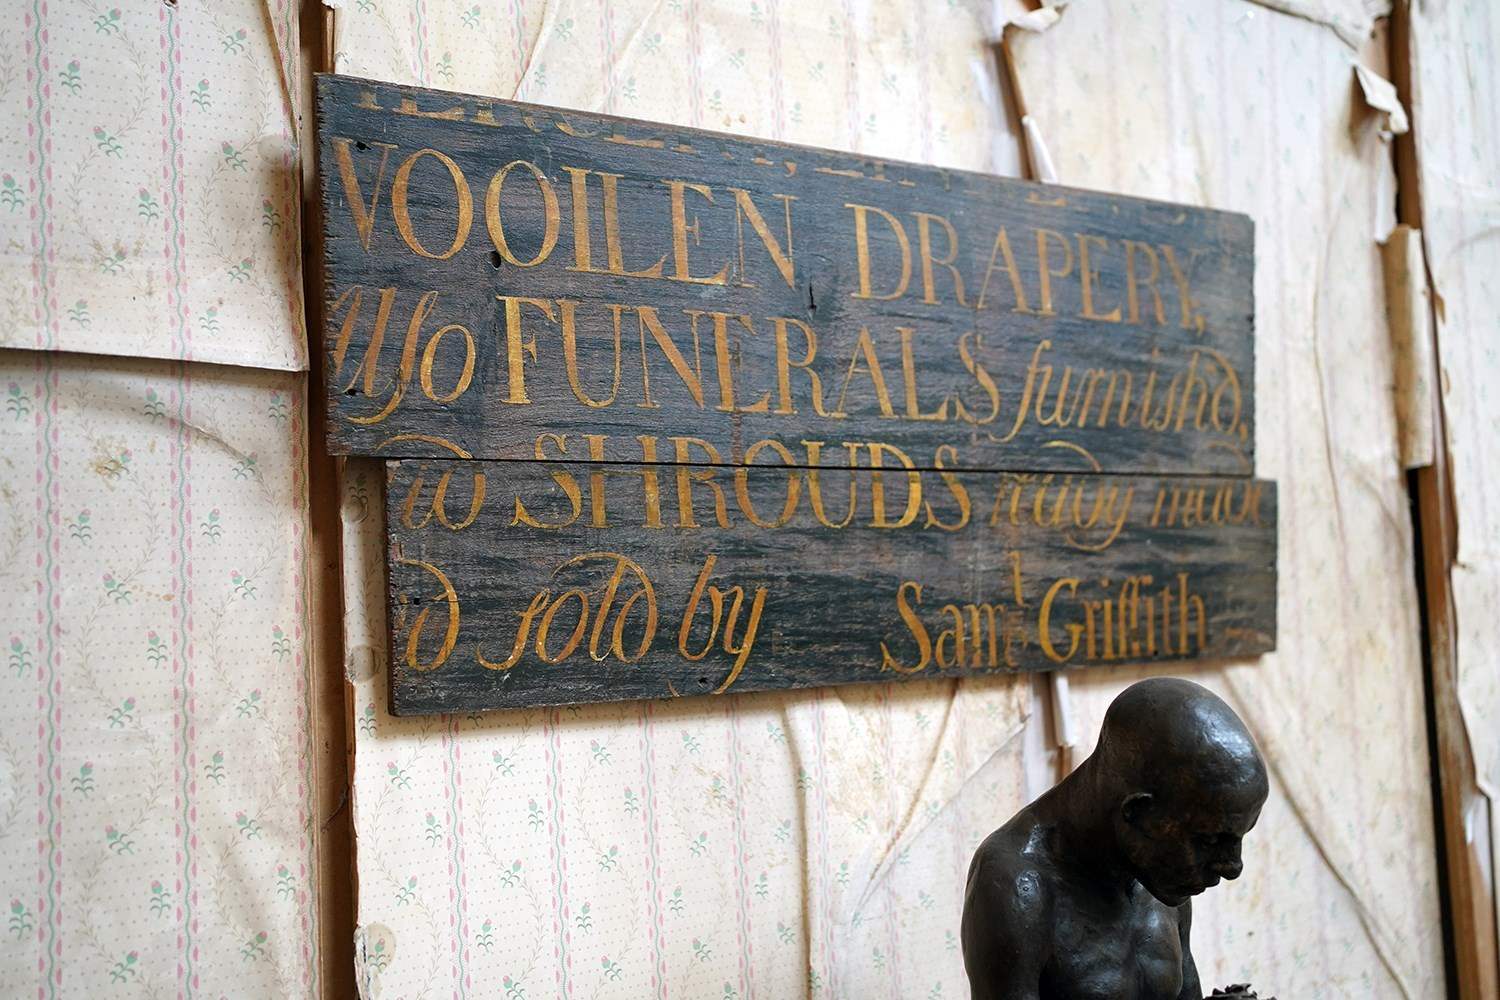 WOOLLEN DRAPERY,
Also FUNERALS furnish'd,
SHROUDS ready made
sold by Sam Griffith